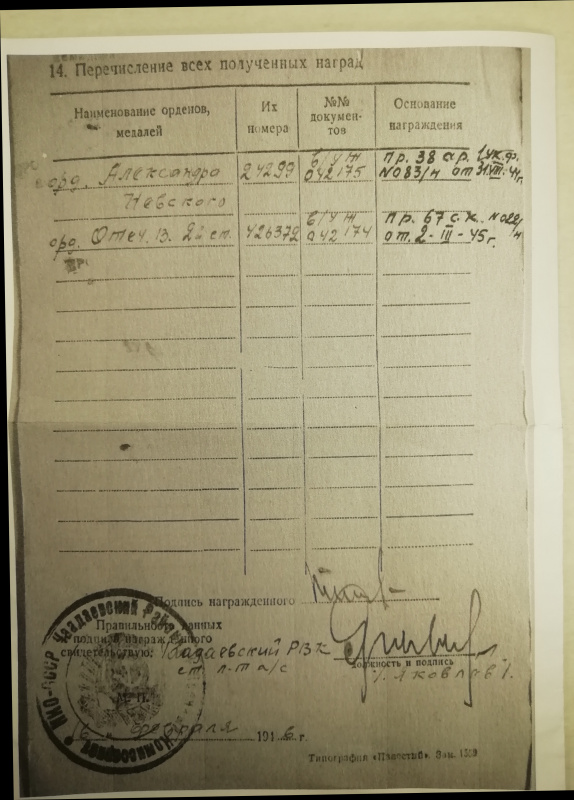 14. Перечисление всех полученных наград
Наименование орденов, медалей
Их номера
№№ докумен-тов
Основание награждения
орд. Александра 24299 б/у Ж 042175 Пр. 38 ар. 1 Ук.ф. №083/н от 31.VIII.44г.
Невского
орд. Отеч. в. 2й ст. 426372 б/у Ж 042174 Пр. 67 с.к. №022/н от 2-III-45г.
Подпись награжденного
Правильность данных
и подписи награжденного
свидетельствую: Чаадаевский РВК
должность и подпись
ст л-т а/с /Яковлев/.
М. П.
16 " февраля 1946 г.
Типография «Известий». Зак. 1569